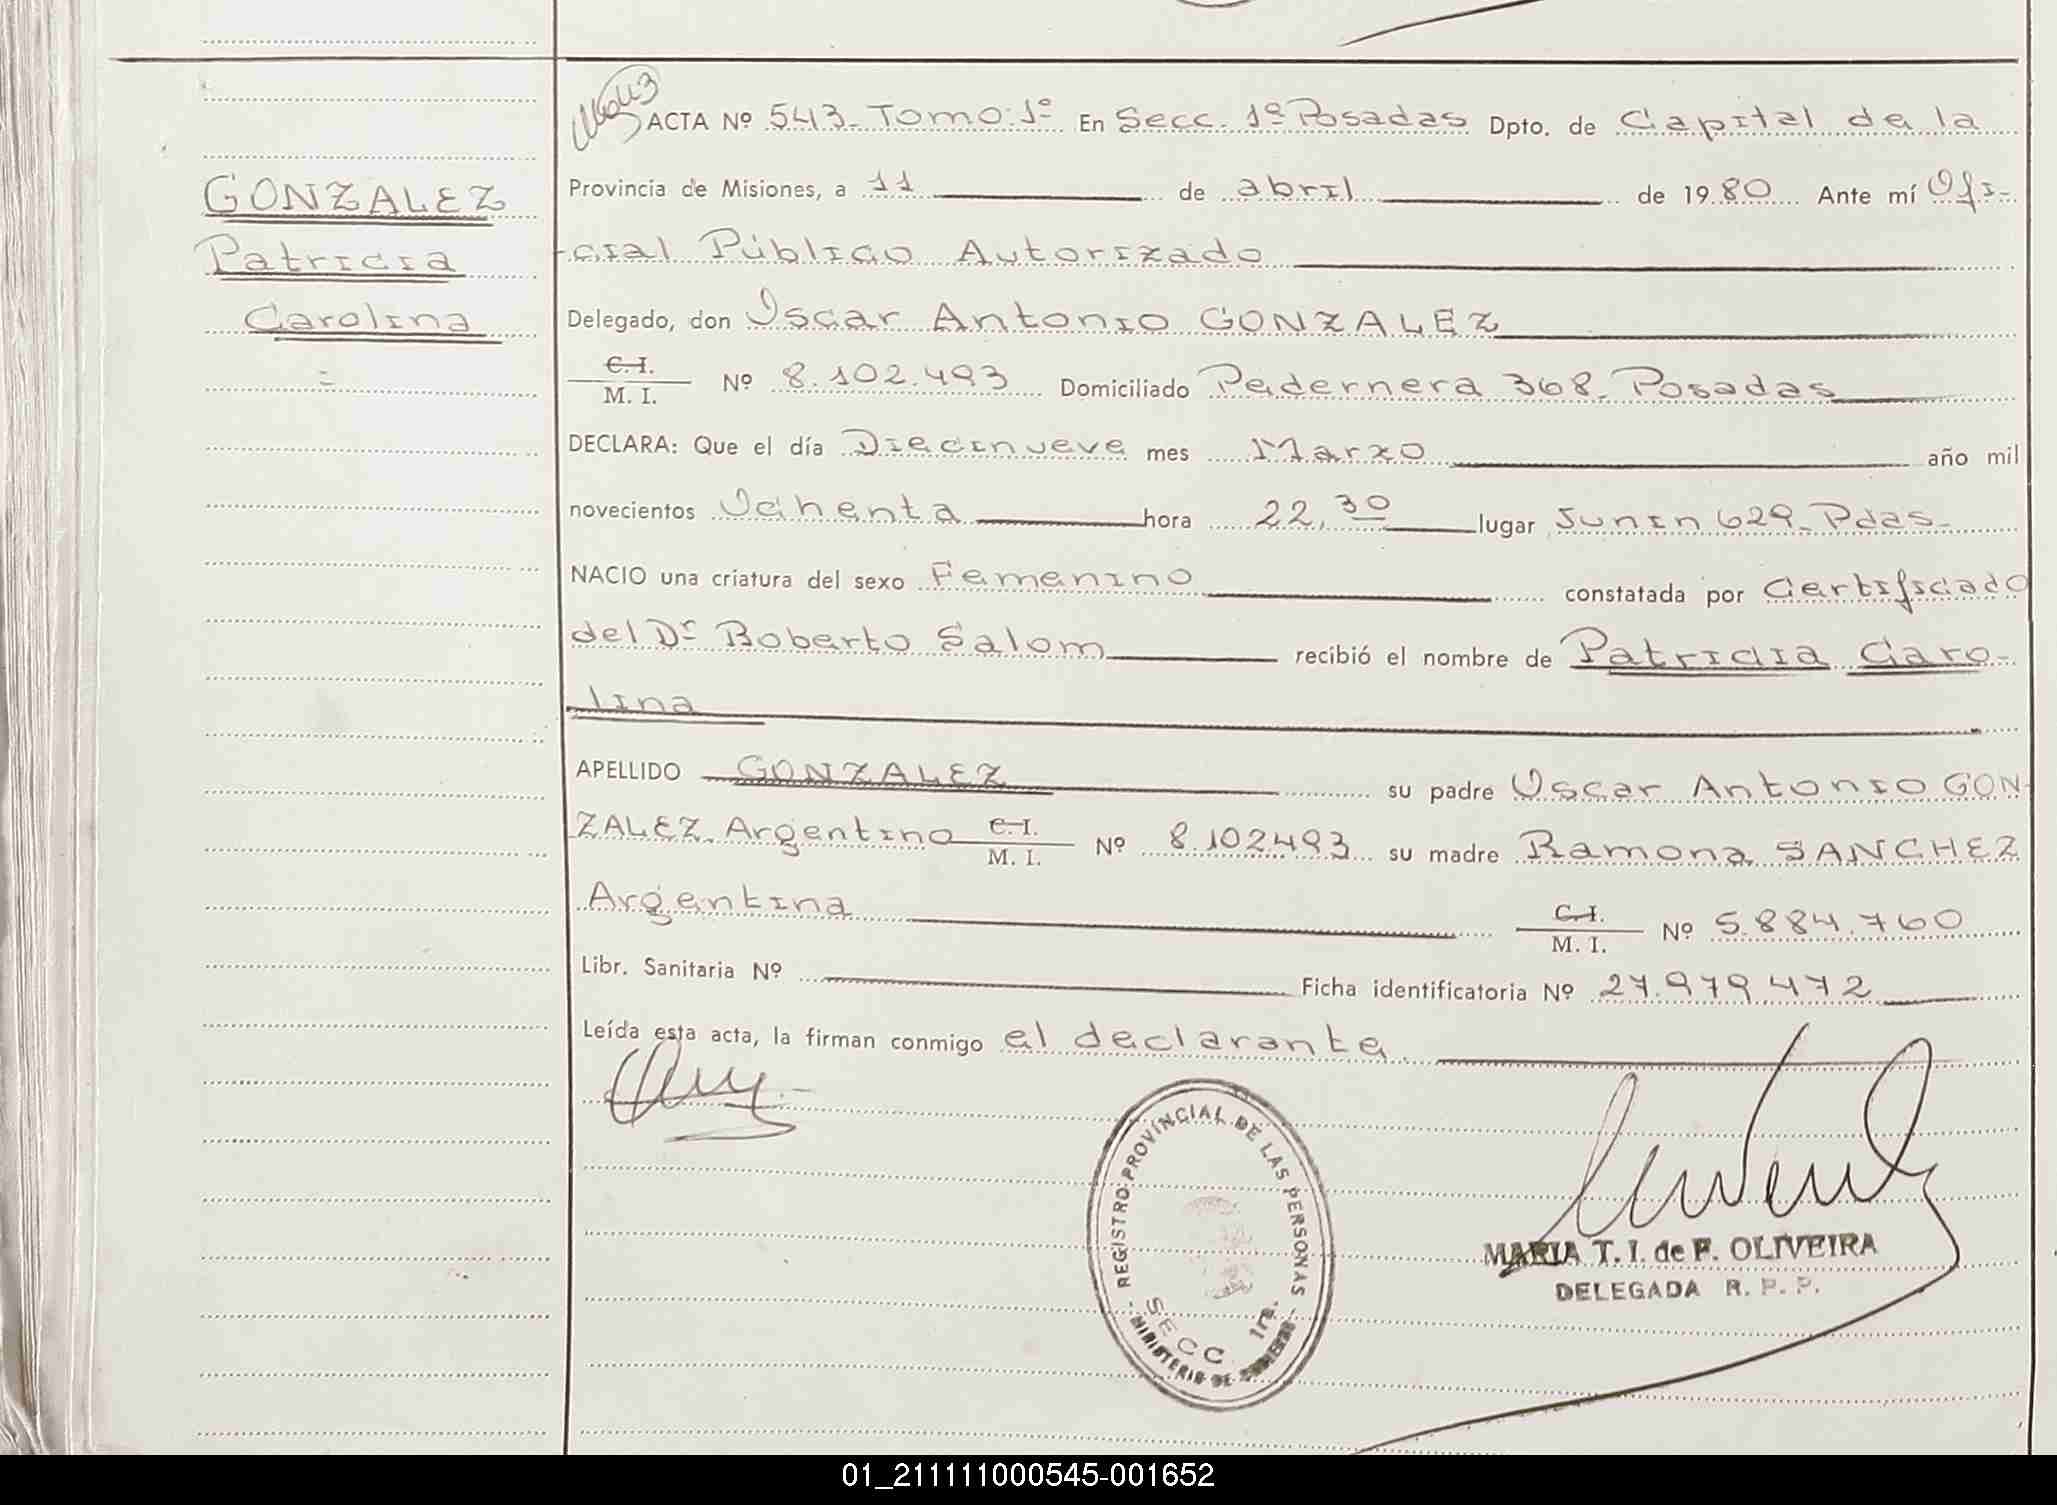 ACTA Nº 543. Tomo: 1º En Secc. 1º Posadas Dpto. de Capital de la
GONZALEZ
Patricia
Carolina
Provincia de Misiones, a 11 de abril de 1980 Ante mí Ofi-
cial Público Autorizado
Delegado, don Oscar Antonio GONZALEZ
C.I.
M. I. Nº 8.102.493 Domiciliado Pedernera 368. Posadas
DECLARA: Que el día Diecinueve mes Marzo año mil
novecientos Ochenta hora 22,30 lugar Junin 629. Pdas.
NACIO una criatura del sexo Femenino constatada por Certificado
del Dr Roberto Salom recibió el nombre de Patricia Caro-
lina
APELLIDO GONZALEZ su padre Oscar Antonio GON-
ZALEZ. Argentino C.I. M. I. Nº 8.102493 su madre Ramona SANCHEZ
Argentina C.I. M. I. Nº 5.884.760
Libr. Sanitaria Nº Ficha identificatoria Nº 27.979.472
Leída esta acta, la firman conmigo el declarante.
REGISTRO PROVINCIAL DE LAS PERSONAS
SECC 1ra.
MINISTERIO DE
MARIA T. I. de F. OLIVEIRA
DELEGADA R. P. P.
01_211111000545-001652